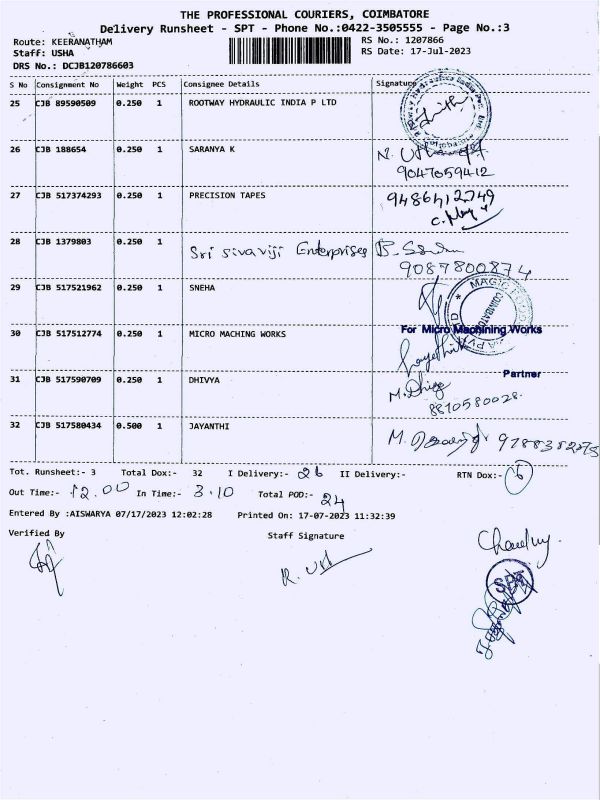 THE PROFESSIONAL COURIERS, COIMBATORE
Delivery Runsheet - SPT - Phone No.:0422-3505555 - Page No.:3
Route: KEERANATHAM RS No.: 1207866
Staff: USHA RS Date: 17-Jul-2023
DRS No.: DCJB120786603
S No Consignment No Weight PCS Consignee Details Signature
25 CJB 89590509 0.250 1 ROOTWAY HYDRAULIC INDIA P LTD
26 CJB 188654 0.250 1 SARANYA K
9047059412
27 CJB 517374293 0.250 1 PRECISION TAPES 9486412749
28 CJB 1379803 0.250 1 Sri sivaviji Enterprises
9087800874
29 CJB 517521962 0.250 1 SNEHA
30 CJB 517512774 0.250 1 MICRO MACHING WORKS For Micro Machining Works
Partner
31 CJB 517590709 0.250 1 DHIVYA
8810580028
32 CJB 517580434 0.500 1 JAYANTHI
Tot. Runsheet:- 3 Total Dox:- 32 I Delivery:- 26 II Delivery:- RTN Dox:- 6
Out Time:- 12.00 In Time:- 3.10 Total POD:- 24
Entered By :AISWARYA 07/17/2023 12:02:28 Printed On: 17-07-2023 11:32:39
Verified By Staff Signature
SPT